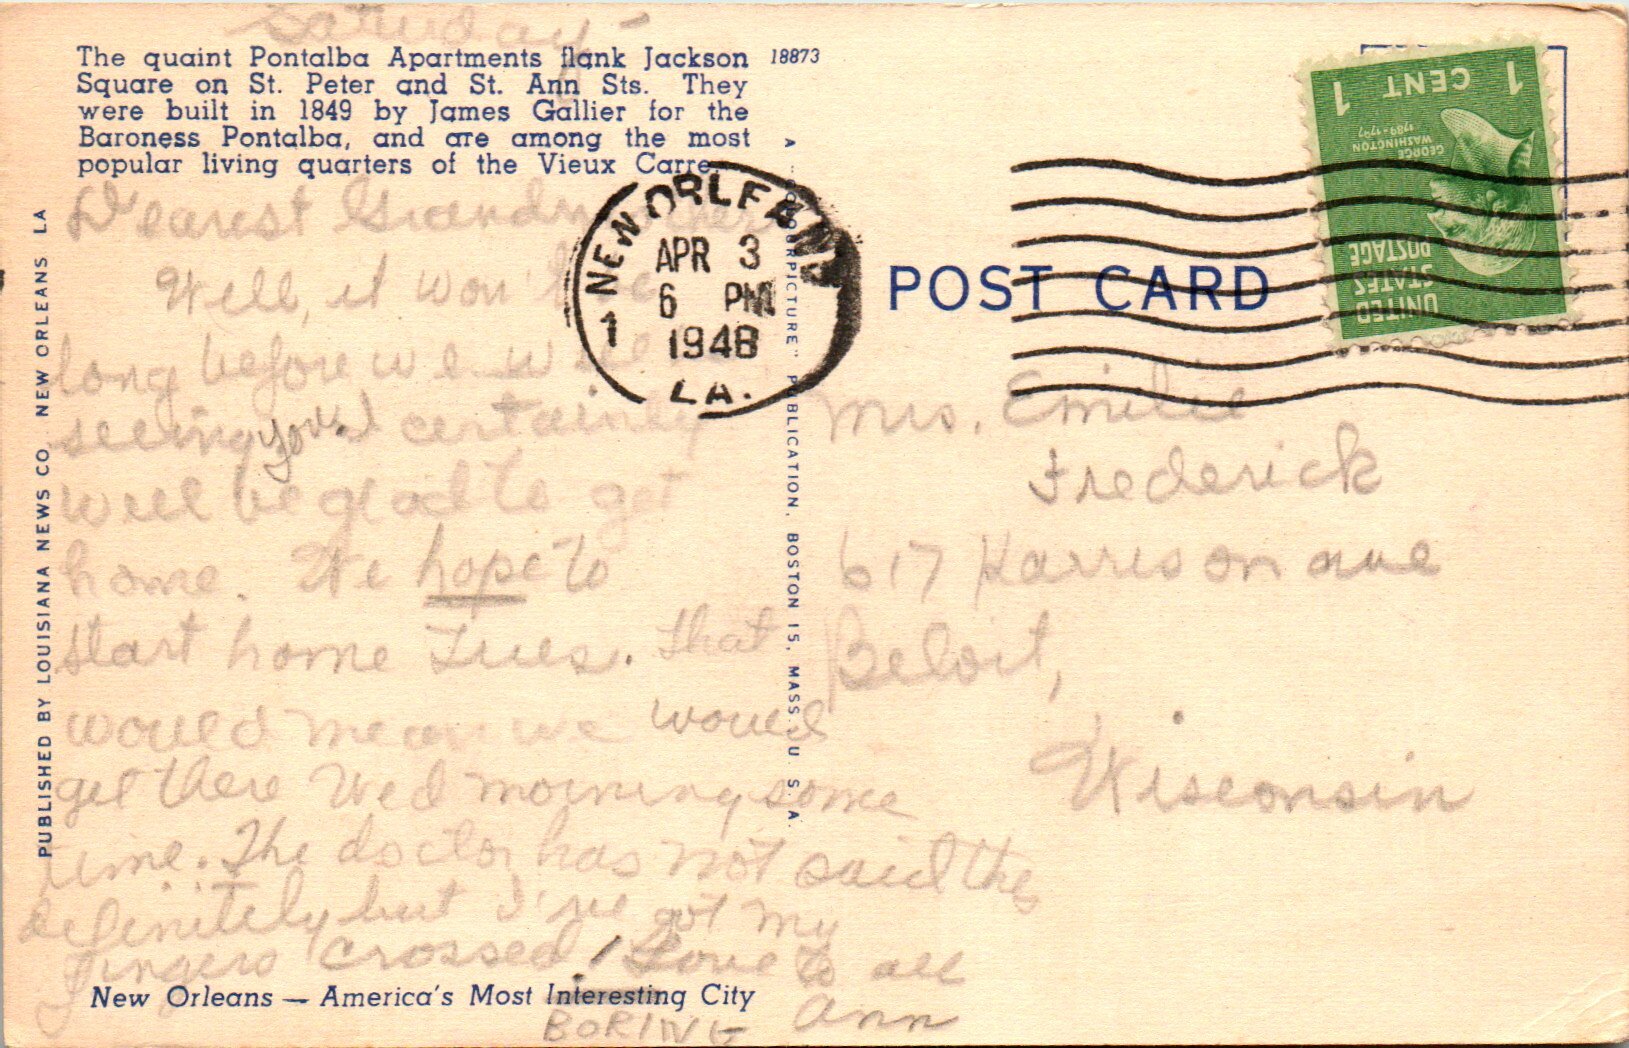 Saturday-
The quaint Pontalba Apartments flank Jackson
Square on St. Peter and St. Ann Sts. They
were built in 1849 by James Gallier for the
Baroness Pontalba, and are among the most
popular living quarters of the Vieux Carre.
18873
Dearest Grandmother
Well, it won't be
long before we will be
seeing you. I certainly
will be glad to get
home. We hope to
start home Tues. That
would mean we would
get there Wed morning some
time. The doctor has not said this
definitely but I've got my
fingers crossed! Love to all
Ann
New Orleans — America's Most Interesting City
BORING
PUBLISHED BY LOUISIANA NEWS CO. NEW ORLEANS LA
A "COLOURPICTURE" PUBLICATION, BOSTON 15, MASS. U. S. A.
NEW ORLEANS
APR 3
6 PM
1948
1
LA.
POST CARD
1 CENT 1
GEORGE
WASHINGTON
1789-1797
UNITED
STATES
POSTAGE
Mrs. Emilie
Frederick
617 Harrison Ave
Beloit,
Wisconsin